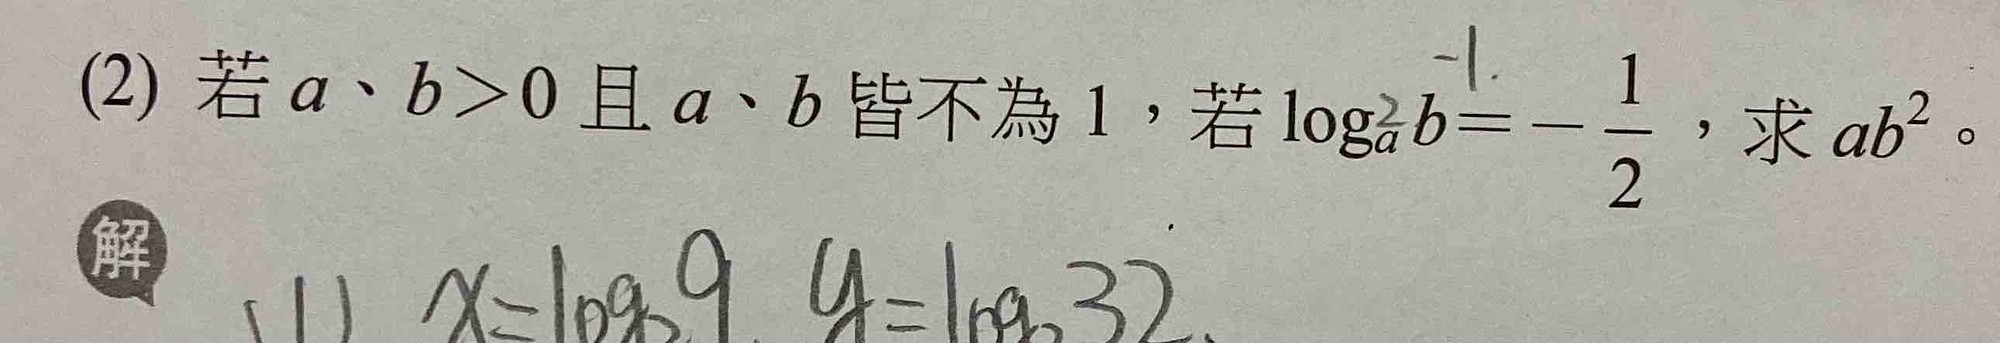 (2) 若 a、b>0 且 a、b 皆不為 1，若 logₐb = -1/2，求 ab²。
-1.
2
解
(1) x=log₃9. y=log₂32.